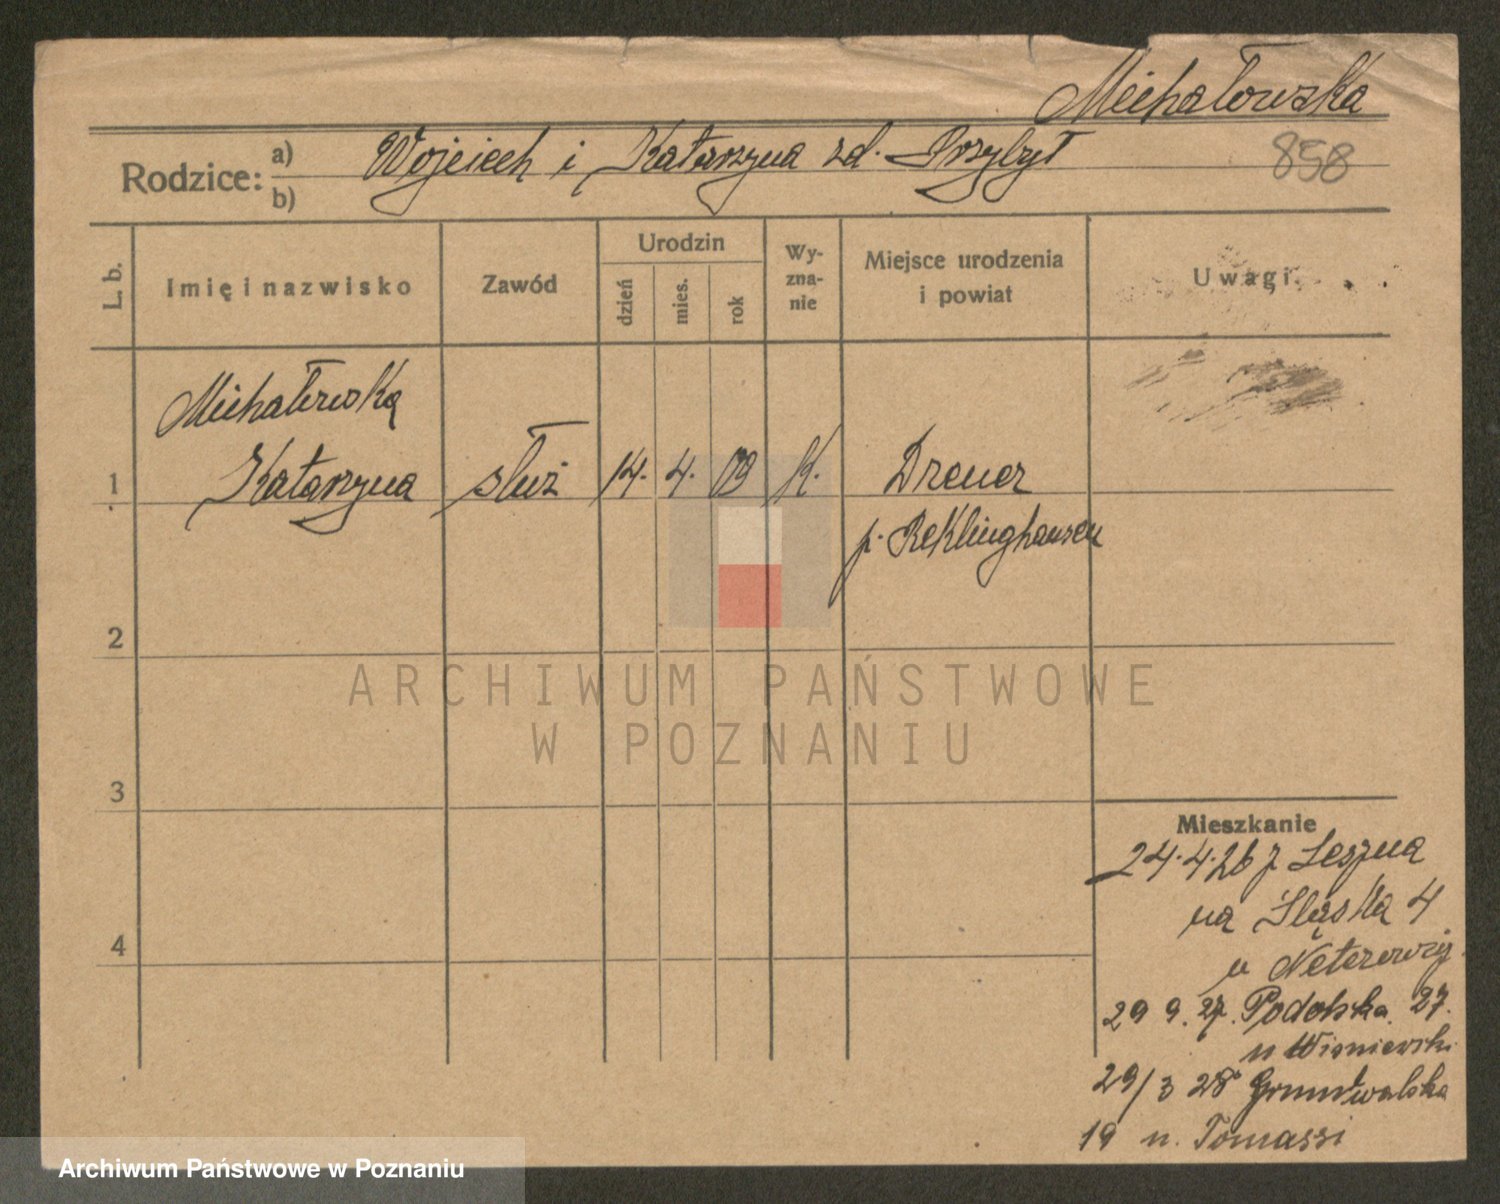 Michałowska
Rodzice: a) b)
Wojciech i Katarzyna zd. Przybył
858
L. b.
Imię i nazwisko
Zawód
Urodzin
dzień
mies.
rok
Wy-
zna-
nie
Miejsce urodzenia
i powiat
Uwagi
Michałowska
1 Katarzyna służ 14. 4. 09 K. Drewer
p. Reklinghausen
2
3
4
Mieszkanie
24.4.26 z Leszna
na Śląska 4
u
29 9. 27. Podolska 27.
u Wiśniewski
29/3 28 Grunwalska
19 u. Tomassi
ARCHIWUM PAŃSTWOWE
W POZNANIU
Archiwum Państwowe w Poznaniu